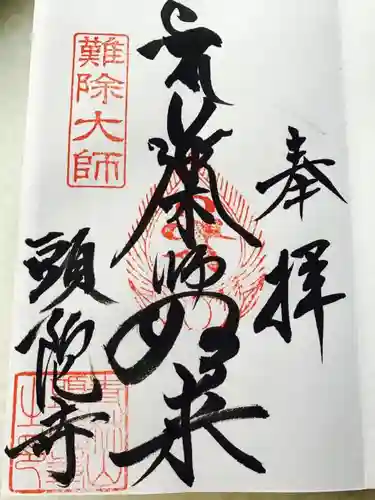 奉拝
薬師如来
頭陀寺
難除大師